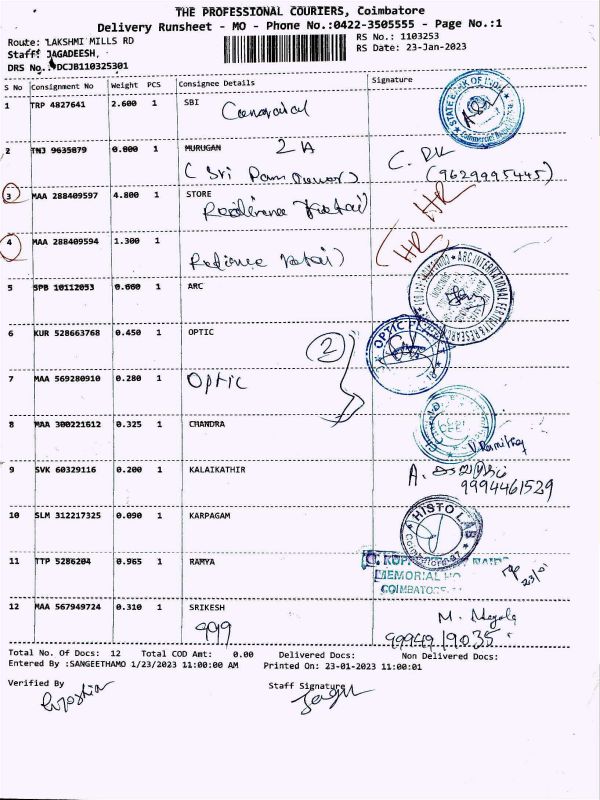 THE PROFESSIONAL COURIERS, Coimbatore
Delivery Runsheet - MO - Phone No.:0422-3505555 - Page No.:1
Route: LAKSHMI MILLS RD RS No.: 1103253
Staff: JAGADEESH, RS Date: 23-Jan-2023
DRS No. DCJB110325301
S No Consignment No Weight PCS Consignee Details Signature
1 TRP 4827641 2.600 1 SBI
STATE BANK OF INDIA
2 TNJ 9635879 0.000 1 MURUGAN 2A
(Sri
(9629995445)
3 MAA 288409597 4.800 1 STORE
HR
4 MAA 288409594 1.300 1
Reliance HR
5 SPB 10112053 0.660 1 ARC
ABC INTERNATIONAL
6 KUR 528663768 0.450 1 OPTIC
2
OPTIC
7 MAA 569280910 0.280 1 Optic
8 MAA 300221612 0.325 1 CHANDRA
9 SVK 60329116 0.200 1 KALAIKATHIR
A.
9994461529
10 SLM 312217325 0.090 1 KARPAGAM
HISTO LAB
Coimbatore
11 TTP 5286204 0.965 1 RAMYA
MEMORIAL
COIMBATORE
23/01
12 MAA 567949724 0.310 1 SRIKESH
M.
Total No. Of Docs: 12 Total COD Amt: 0.00 Delivered Docs: Non Delivered Docs:
Entered By :SANGEETHAMO 1/23/2023 11:00:00 AM Printed On: 23-01-2023 11:00:01
Verified By Staff Signature